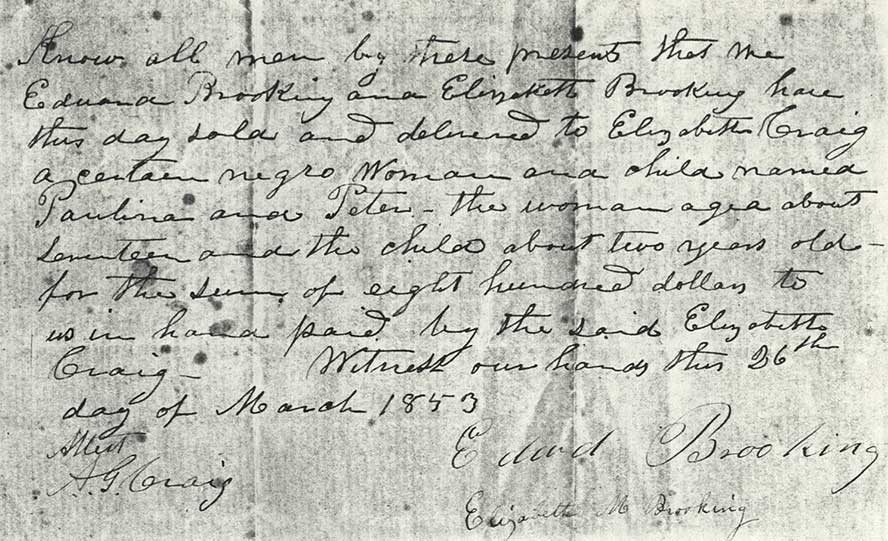 Know all men by these presents that we
Edward Brooking and Elizabeth Brooking have
this day sold and delivered to Elizabeth Craig
a certain negro Woman and child named
Paulina and Peter - the woman aged about
seventeen and the child about two years old -
for the sum of eight hundred dollars to
us in hand paid by the said Elizabeth
Craig - Witness our hands this 26th
day of March 1853
Attest
A. G. Craig
Edwd Brooking
Elizabeth M Brooking